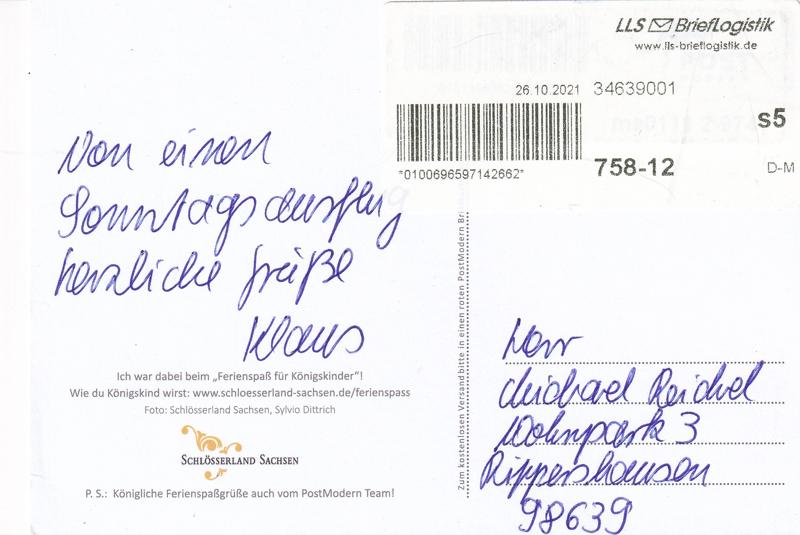 LLS BriefLogistik
www.lls-brieflogistik.de
26.10.2021 34639001
s5
*0100696597142662*
758-12
D-M
Von einen
Sonntagsausflug
herzliche Grüße
Klaus
Ich war dabei beim „Ferienspaß für Königskinder"!
Wie du Königskind wirst: www.schloesserland-sachsen.de/ferienspass
Foto: Schlösserland Sachsen, Sylvio Dittrich
SCHLÖSSERLAND SACHSEN
P. S.: Königliche Ferienspaßgrüße auch vom PostModern Team!
Zum kostenlosen Versand bitte in einen roten PostModern Bri
Herr
Michael Reichel
Wohnpark 3
Rippershausen
98639